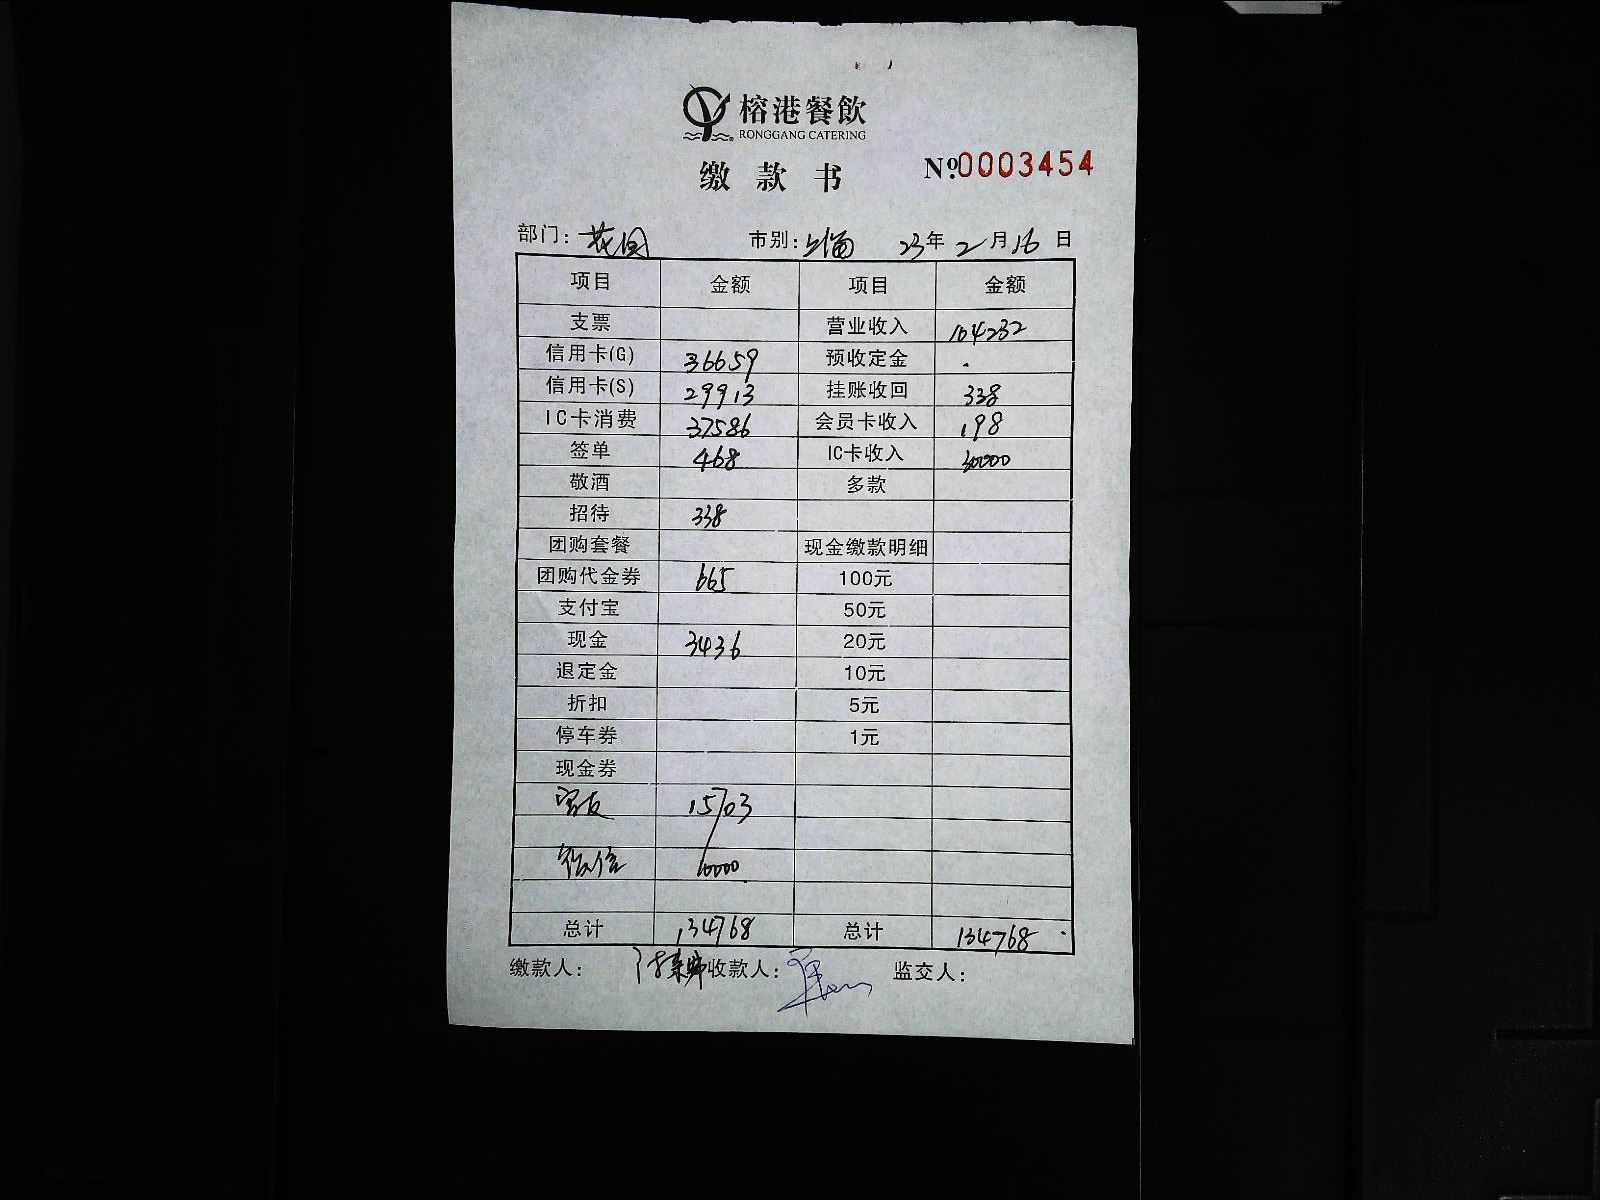 榕港餐飲
RONGGANG CATERING
缴款书
№.0003454
部门: 花园 市别: 23年2月16日
项目 金额 项目 金额
支票 营业收入 104232
信用卡(G) 36659 预收定金
信用卡(S) 29913 挂账收回 338
IC卡消费 37586 会员卡收入 198
签单 468 IC卡收入 30000
敬酒 多款
招待 338
团购套餐 现金缴款明细
团购代金券 665 100元
支付宝 50元
现金 3436 20元
退定金 10元
折扣 5元
停车券 1元
现金券
15703
微信 10000
总计 134768 总计 134768
缴款人: 收款人: 监交人: